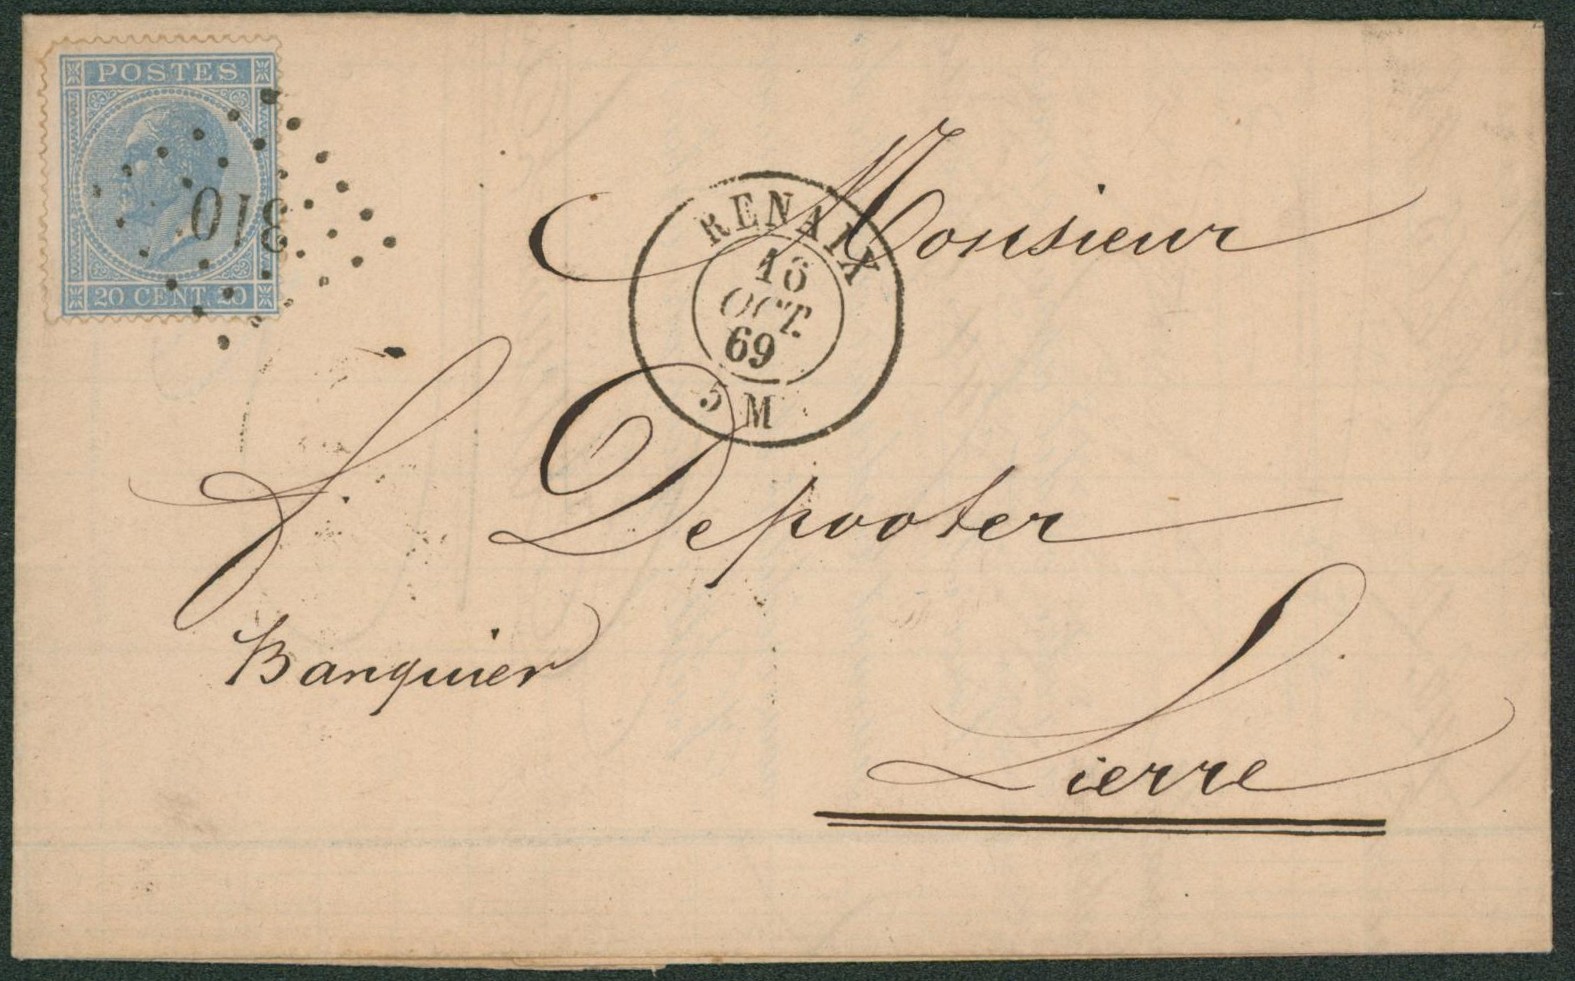 POSTES
20 CENT. 20
310
RENAIX
16
OCT.
69
5 M
Monsieur
J. Depooter
Banquier
Lierre